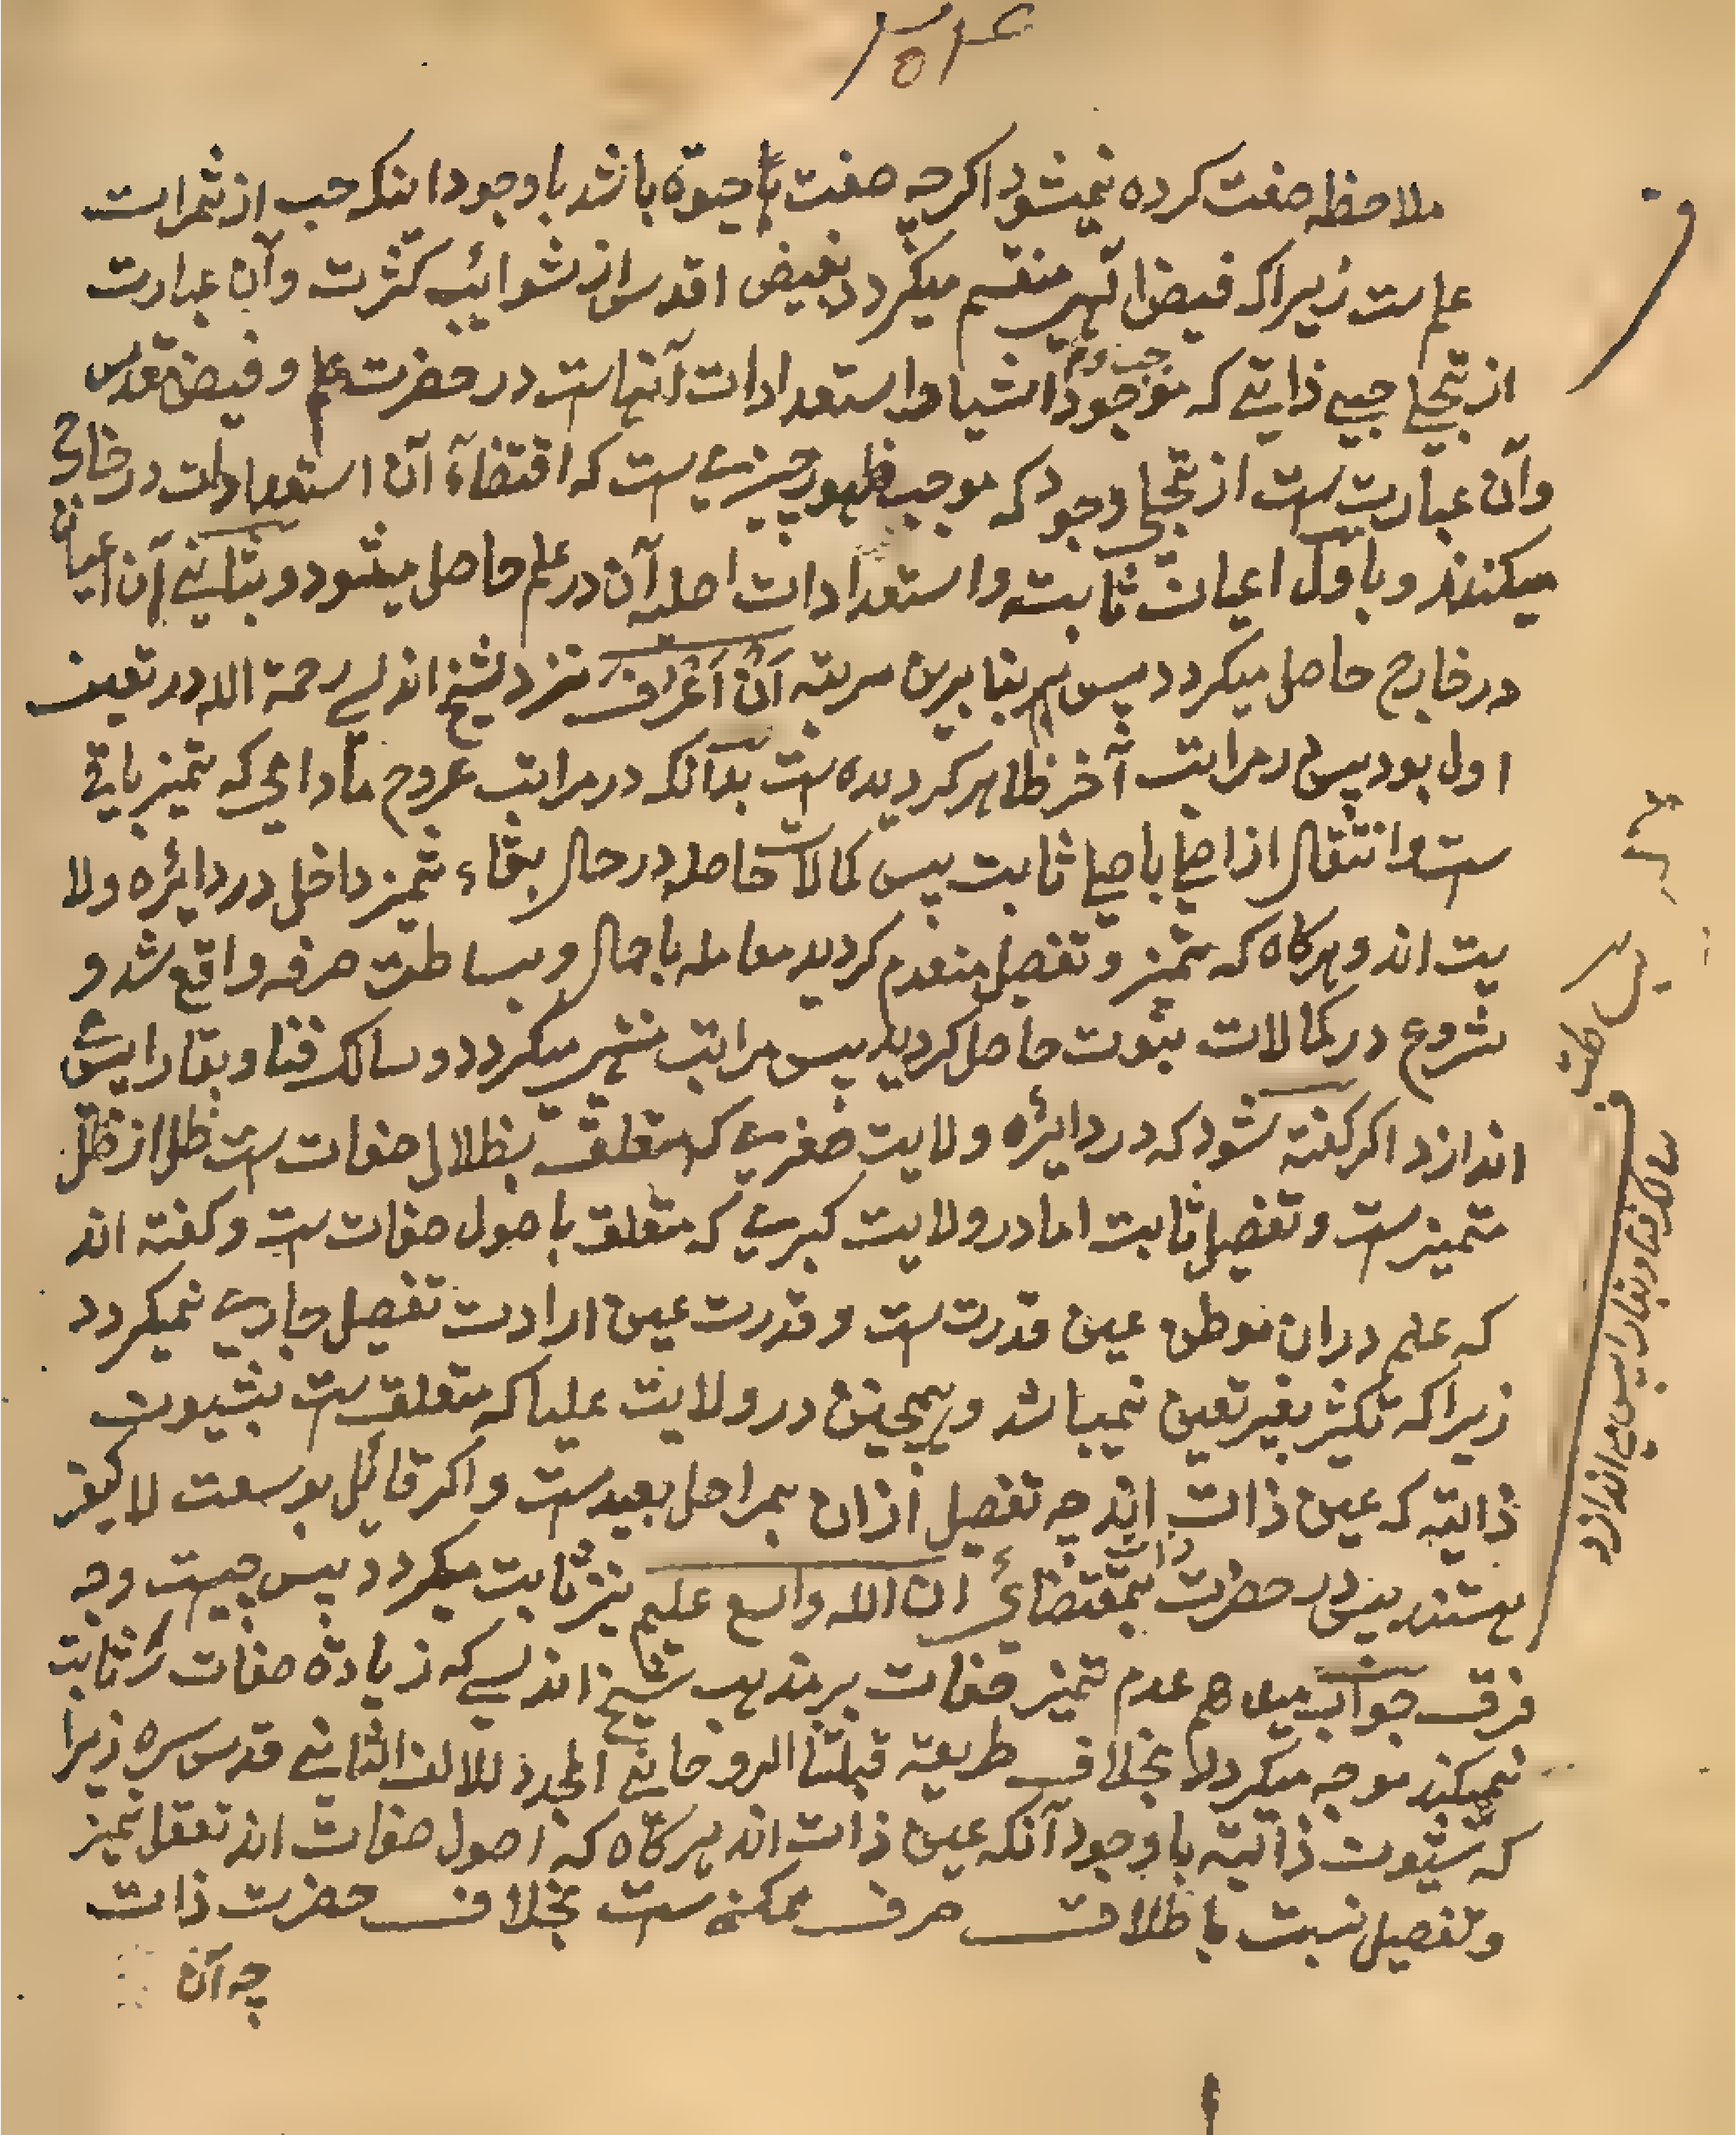 ملاحظه صفت کرده نمیشود اکرچه صفت یا حیوة باشد باوجود اینکه حب از ثمرات
علم ست زیراکه فیض الٓهی منقسم میکردد بفیض اقدس از شوائب کثرت وآن عبارت
از تجلے حبے ذاتے که موجب وجود اشیا و استعدادات آنهاست در حضرت علم و فیض مقدس
وآن عبارت ست از تجلی وجود که موجب ظهور چیزے ست که اقتضآء آن استعدادات در خارج
میکنند و باول اعیان ثابته و استعدادات اصلیه آن در علم حاصل میشود و بثانے آن اعیان
در خارج حاصل میکردد پس بنابرین مرتبه اَنْ اُعْرَف نزد شیخ اندلسے رحمة الله در تعین
اول بود پس در مراتب آخر ظاهر کردیده ست بدآنکه در مراتب عروج مادامی که تمیز باقے
ست و انتقال از اصلے باصلے ثابت پس کمالات حاصله در حال بقاء تمیز داخل در دایٔره ولا
یت اند و هرکاه که تمیز و تفصیل منعدم کردید معامله باجمال و بساطت صرفه واقع شد و
شروع در کمالات نبوت حاصل کردید پس مراتب منتهی میکردد و سالک فنا و بقا را پس می
اندازد اکر کفته شود که در دایٔره ولایت صغرے که متعلق بظلال صفات ست ظلا از ظل
متمیز ست و تفصیل ثابت اما در ولایت کبرے که متعلق باصول صفات ست و کفته اند
که علم دران موطن عین قدرت ست و قدرت عین ارادت تفصیل جارے نمیکردد
زیراکه تکثر بغیر تعین نمیباشد و همچنین در ولایت علیا که متعلق ست بشیون
ذاتیه که عین ذات اند چه تفصیل ازان بمراحل بعید ست و اکر قائل بوسعت لا کیف
هستند پس در حضرت ذات بمقتضائ ان الله واسع علیم نیز ثابت میکردد پس چیست وجه
فرق جواب میدهم عدم تمیز صفات بر مذهب شیخ اندلسے که زیادة صفات را ثابت
نمیکند موجه میکردد بخلاف طریقه قبلتنا الروحانے المجدد للالف الثانے قدس سره زیرا
که شیون ذاتیه باوجود آنکه عین ذات اند هرکاه که اصول صفات اند تعقل تمیز
و تفصیل نسبت باطلاق صرف ممکن ست بخلاف حضرت ذات
چه آن
سالک فنا و بقا را پس می اندازد